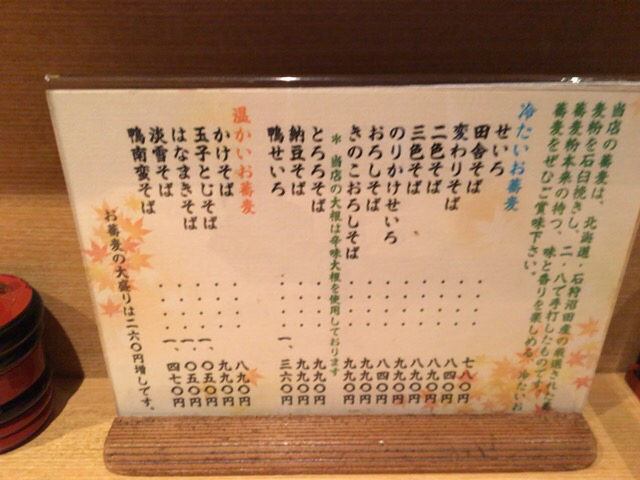 当店の蕎麦は、北海道・石狩沼田産の厳選された蕎
麦粉を石臼挽きし、二・八で手打したものです。
蕎麦粉本来の持つ、味と香りを楽しめる、冷たいお
蕎麦をぜひご賞味下さい。
冷たいお蕎麦
せいろ・・・・七八〇円
田舎そば・・・・八四〇円
変わりそば・・・・九九〇円
二色そば・・・・九九〇円
三色そば・・・・九九〇円
のりかけせいろ・・・・八四〇円
おろしそば・・・・九九〇円
きのこおろしそば・・・・九九〇円
＊当店の大根は辛味大根を使用しております
とろろそば・・・・九九〇円
納豆そば・・・・九九〇円
鴨せいろ・・・・一、三六〇円
温かいお蕎麦
かけそば・・・・八九〇円
玉子とじそば・・・・九九〇円
はなまきそば・・・・一、〇五〇円
淡雪そば・・・・一、〇五〇円
鴨南蛮そば・・・・一、四七〇円
お蕎麦の大盛りは二六〇円増しです。